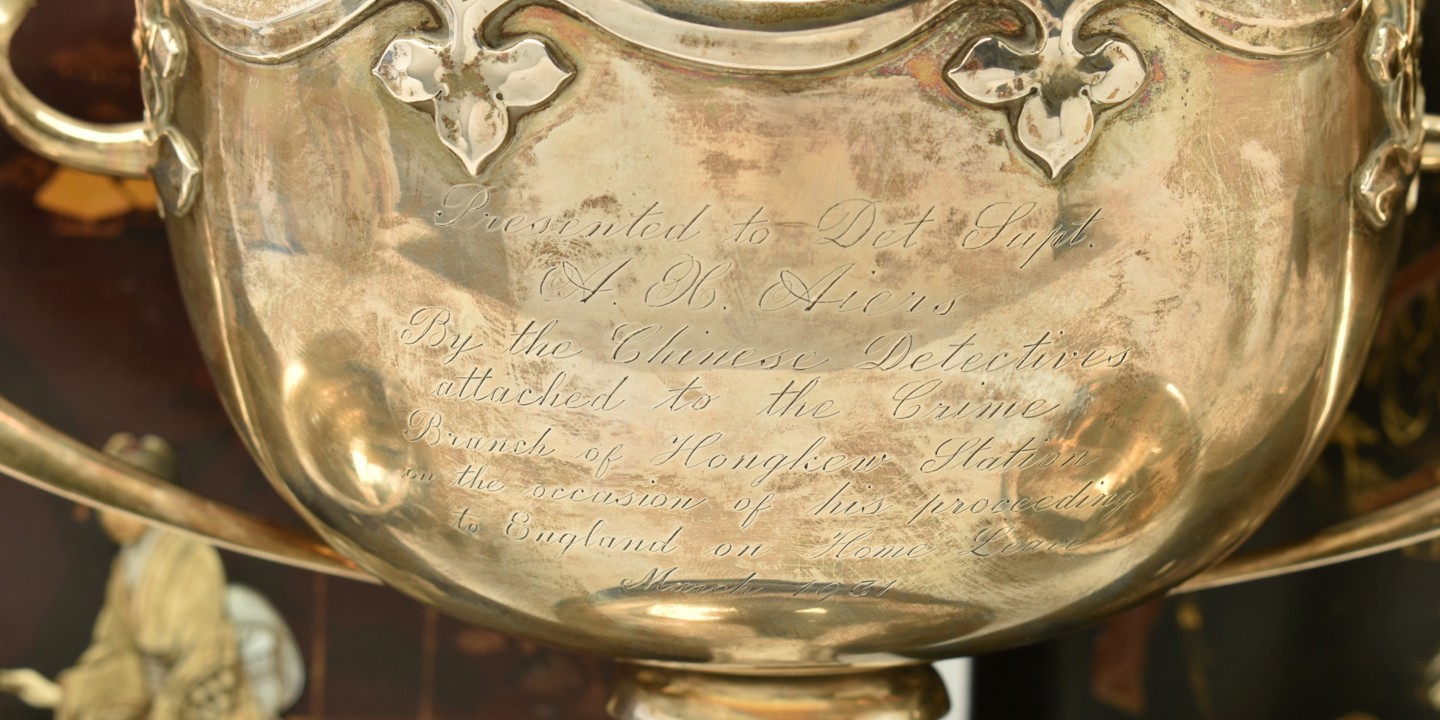 Presented to Det Supt.
A. H. Aiers
By the Chinese Detectives
attached to the Crime
Branch of Hongkew Station
on the occasion of his proceeding
to England on Home Leave
March 1931